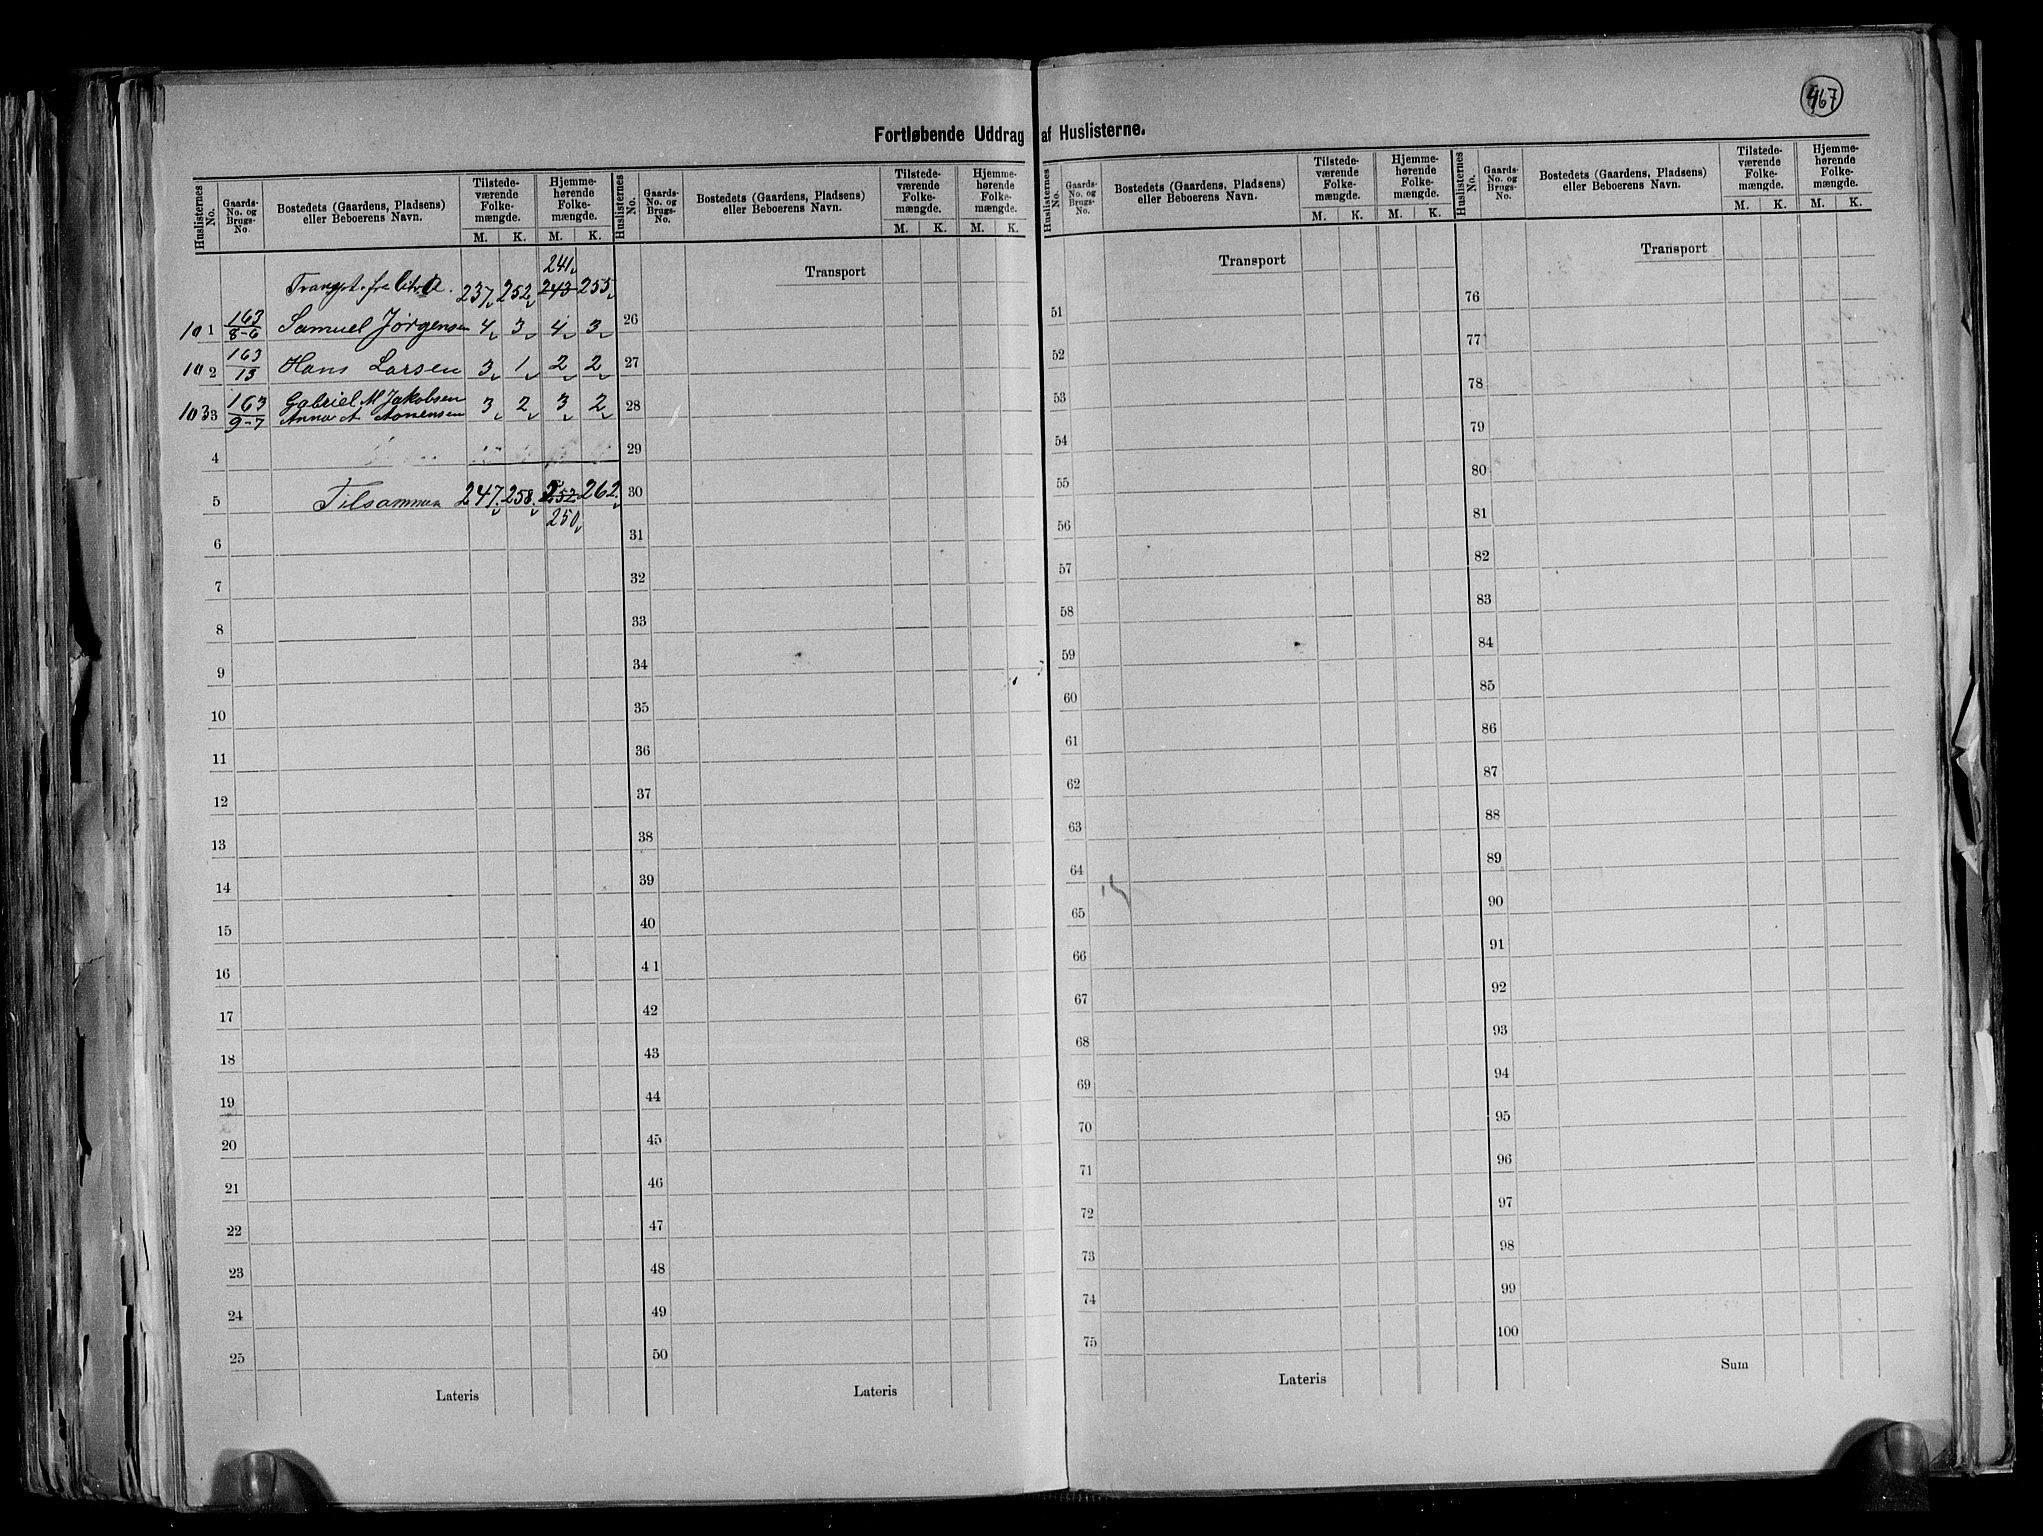 467
Fortløbende Uddrag af Huslisterne.
Huslisternes No. Gaards-No. og Brugs-No. Bostedets (Gaardens, Pladsens) eller Beboerens Navn. Tilstede-værende Folke-mængde. M. K. Hjemme-hørende Folke-mængde. M. K.
241
237 252 243 255
101 163/8-6 Samuel Jørgensen 4 3 4 3
102 163/13 Hans Larsen 3 1 2 2
1033 163/9-7 Gabriel M Jakobsen
Anna A Aanensen 3 2 3 2
4
5 Tilsammen 247 258 252 262
250
6
7
8
9
10
11
12
13
14
15
16
17
18
19
20
21
22
23
24
25
Lateris
Huslisternes No. Gaards-No. og Brugs-No. Bostedets (Gaardens, Pladsens) eller Beboerens Navn. Tilstede-værende Folke-mængde. M. K. Hjemme-hørende Folke-mængde. M. K.
Transport
26
27
28
29
30
31
32
33
34
35
36
37
38
39
40
41
42
43
44
45
46
47
48
49
50
Lateris
Huslisternes No. Gaards-No. og Brugs-No. Bostedets (Gaardens, Pladsens) eller Beboerens Navn. Tilstede-værende Folke-mængde. M. K. Hjemme-hørende Folke-mængde. M. K.
Transport
51
52
53
54
55
56
57
58
59
60
61
62
63
64
65
66
67
68
69
70
71
72
73
74
75
Lateris
Huslisternes No. Gaards-No. og Brugs-No. Bostedets (Gaardens, Pladsens) eller Beboerens Navn. Tilstede-værende Folke-mængde. M. K. Hjemme-hørende Folke-mængde. M. K.
Transport
76
77
78
79
80
81
82
83
84
85
86
87
88
89
90
91
92
93
94
95
96
97
98
99
100
Sum